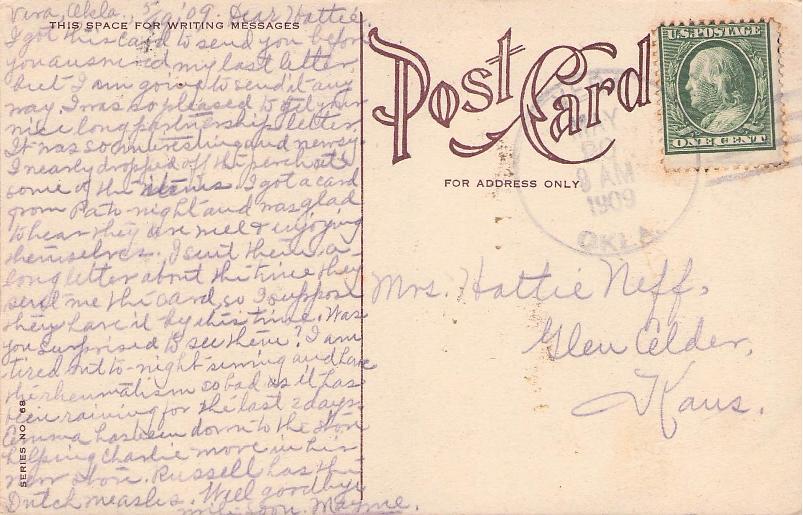 Vira, Okla. 5/19/'09. Dear Hattie:
THIS SPACE FOR WRITING MESSAGES
I got this card to send you before
you answered my last letter
but I am going to send it any
way. I was so pleased to get the
nice long partnership letter.
It was so interesting and newsy.
I nearly dropped off the perch at
some of the items. I got a card
from Pa to-night and was glad
to hear they are well & enjoying
themselves. I sent them a
long letter about the time they
send me the card, so I suppose
they have it by this time. Was
you surprised to see them? I am
tired out to-night sewing and have
the rheumatism so bad as it has
been raining for the last 2 days.
Emma has been down to the store
helping Charlie move in his
new store. Russell has the
Dutch measles. Well goodbye
write soon. Mayme.
SERIES NO. 68
Post Card
FOR ADDRESS ONLY
U.S. POSTAGE
ONE CENT
MAY
9 AM
1909
OKLA.
Mrs. Hattie Neff,
Glen Elder,
Kans.